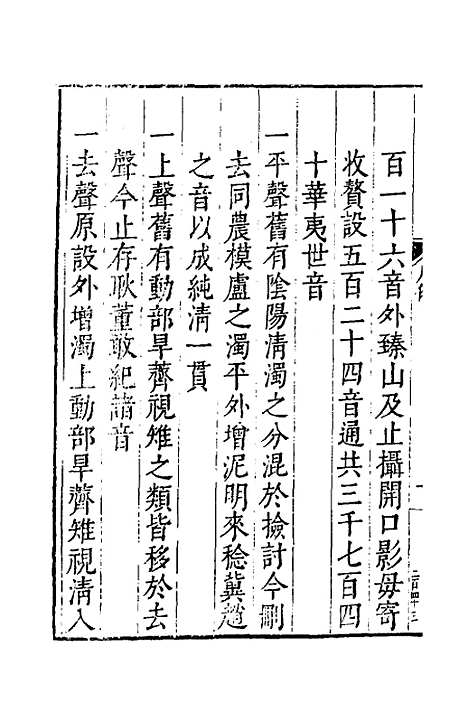 百一十六音外臻山及止攝開口影毋寄
收贅設五百二十四音通共三千七百四
十華夷世音
一平聲舊有陰陽清濁之分混於撿討今刪
去同農模盧之濁平外增泥明來稔冀趙
之音以成純清一貫
一上聲舊有動部旱薺視雉之類皆移於去
聲今止存耿董敢紀諸音
一去聲原設外增濁上動部旱薺雉視清入